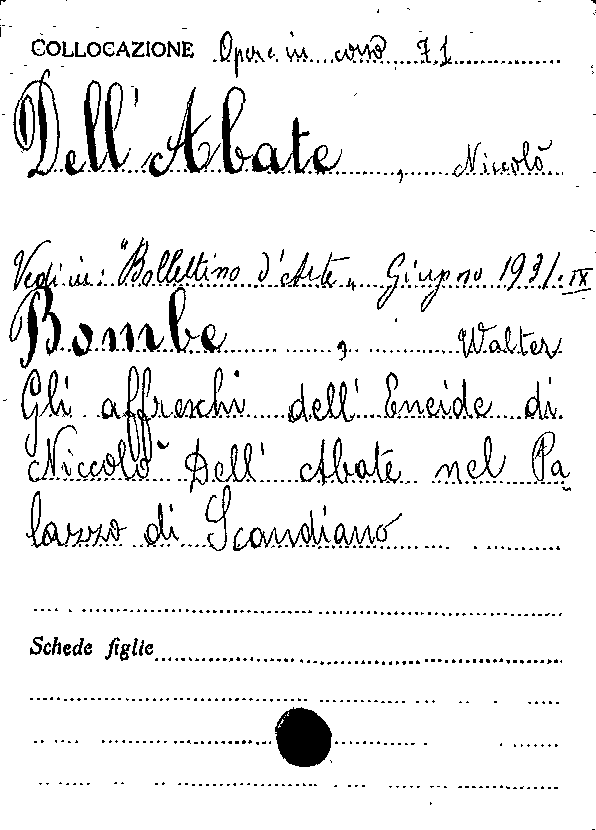 COLLOCAZIONE Opere in corso 71
Dell' Abate, Niccolò
Vedi in: "Bollettino d'Arte" Giugno 1931. IX
Bombe, Walter
Gli affreschi dell' Eneide di
Niccolò Dell' Abate nel Pa
lazzo di Scandiano
Schede figlie